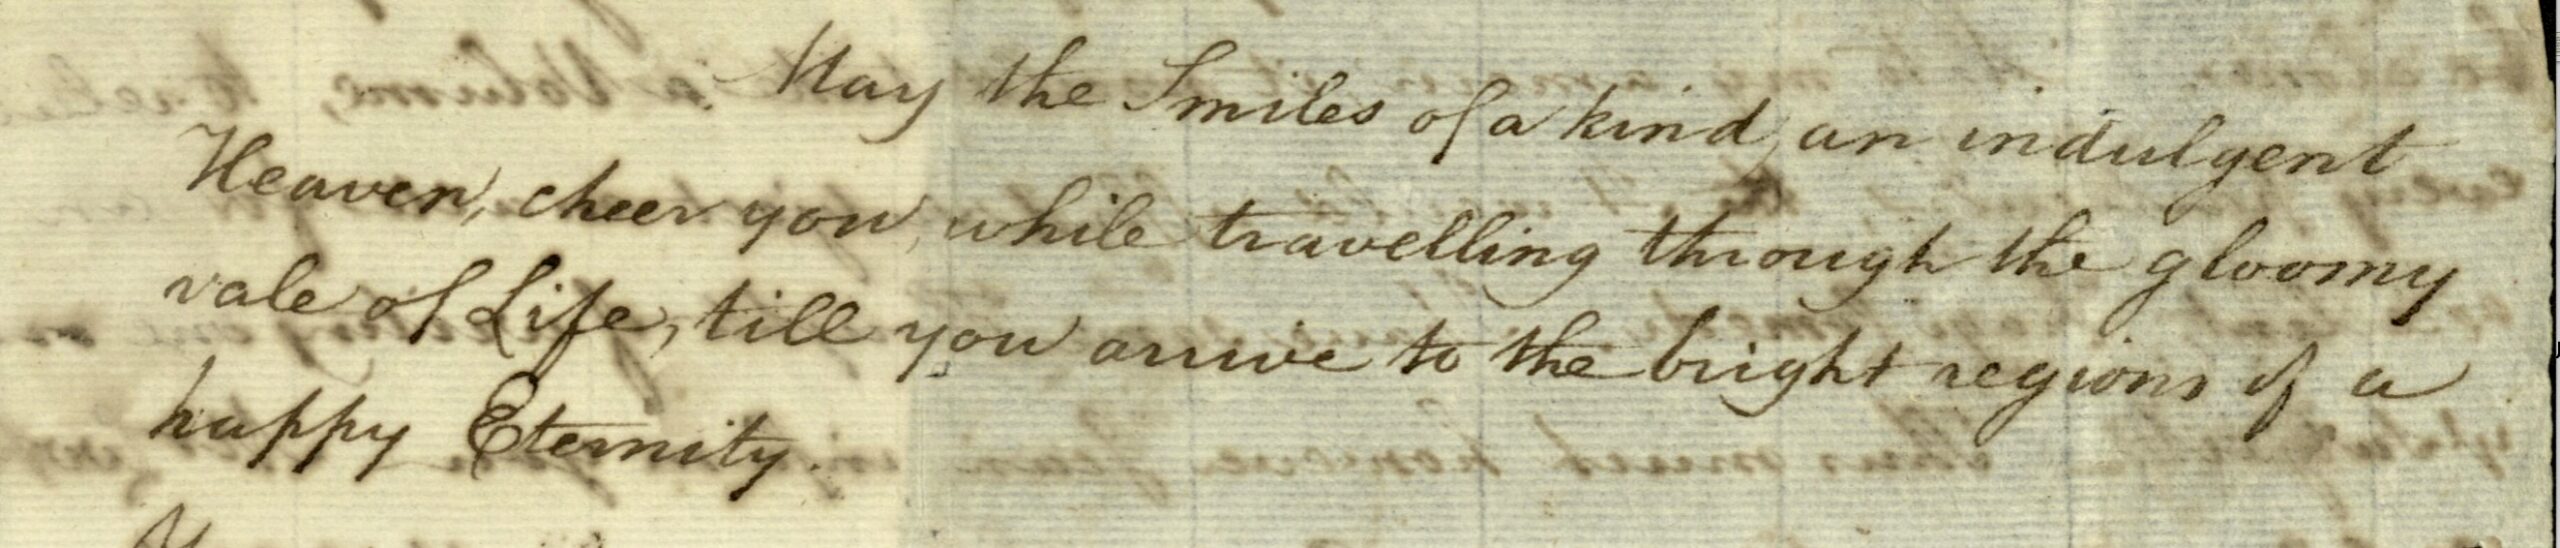 May the Smiles of a kind, an indulgent
Heaven, cheer you, while travelling through the gloomy
vale of Life, till you arrive to the bright regions of a
happy Eternity.